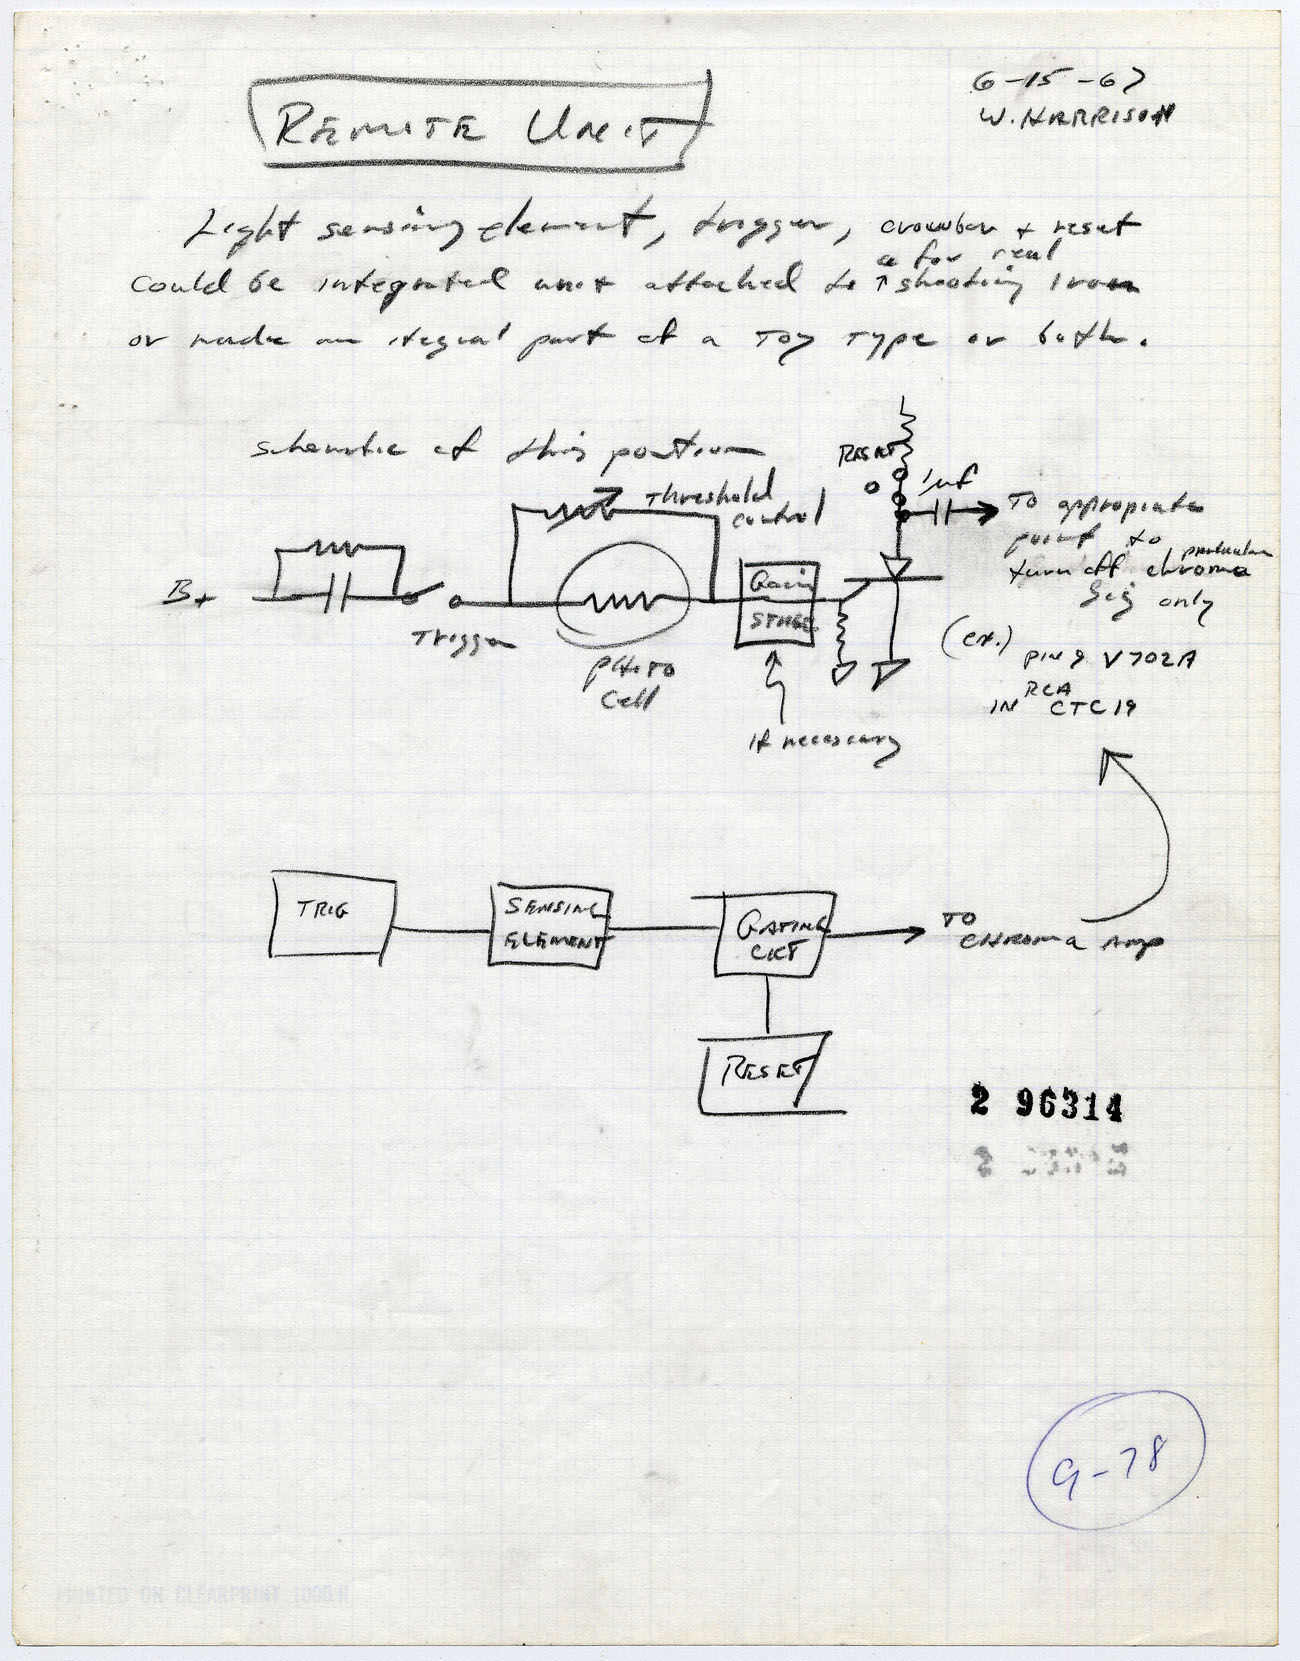 6-15-67
W. HARRISON
REMOTE UNIT
Light sensing element, trigger, crowbar + reset
a for real
could be integrated unit attached to ↑ shooting iron
or made an itegral part of a TOY TYPE or both.
schematic of this portion
RESET
1 μf
Threshold
control
TO appropriate
point to
particular
turn off chroma
Sig only
B+
Trigger
PHOTO
Cell
Gain
STAGE
If necessary
(ex.)
PIN 9 V702A
RCA
IN CTC19
TRIG
SENSING
ELEMENT
GATING
CKT
TO
CHROMA AMP
RESET
2 96314
9-78
PRINTED ON CLEARPRINT 1000H